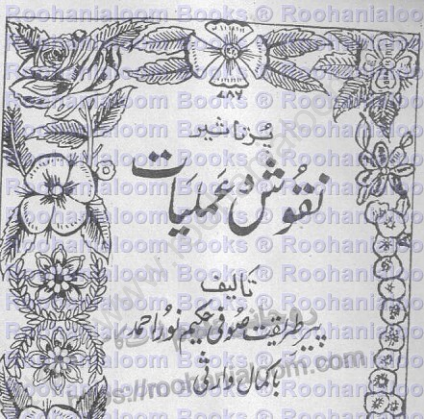 Roohanialoom Books ® Roohanialoo
۷۸۶
پُر تاثیر
نقوش و عملیات
تالیف
پیر طریقت صوفی حکیم نور احمد
باکمال وارثی
https://roohanialoom.com